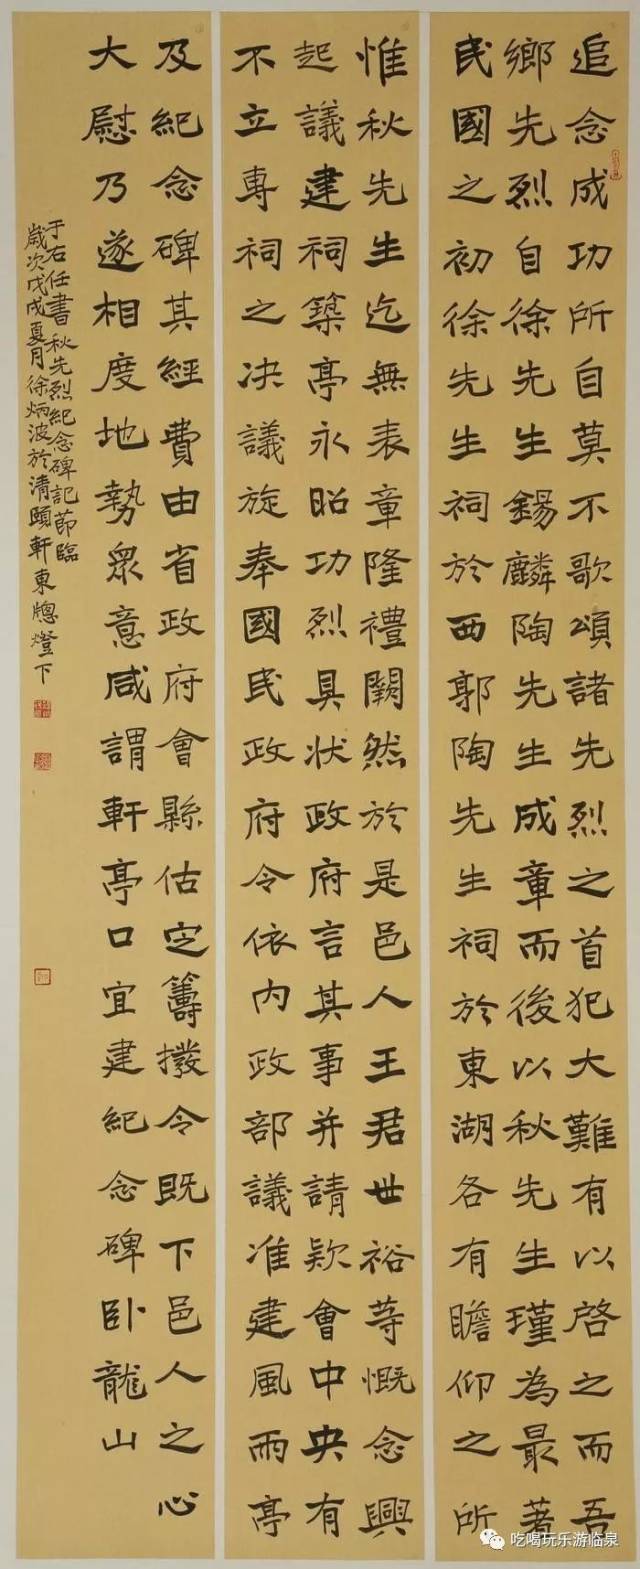 追念成功所自莫不歌頌諸先烈之首犯大難有以啓之而吾
鄉先烈自徐先生錫麟陶先生成章而後以秋先生瑾為最著
民國之初徐先生祠於西郭陶先生祠於東湖各有瞻仰之所
惟秋先生迄無表章隆禮闕然於是邑人王君世裕等慨念興
起議建祠築亭永昭功烈具狀政府言其事并請欵會中央有
不立專祠之决議旋奉國民政府令依內政部議准建風雨亭
及紀念碑其經費由省政府會縣估定籌撥令既下邑人之心
大慰乃遂相度地勢眾意咸謂軒亭口宜建紀念碑卧龍山
于右任書秋先烈紀念碑記節臨
歲次戊戌夏月徐炳波於清頤軒東牕燈下
吃喝玩乐游临泉